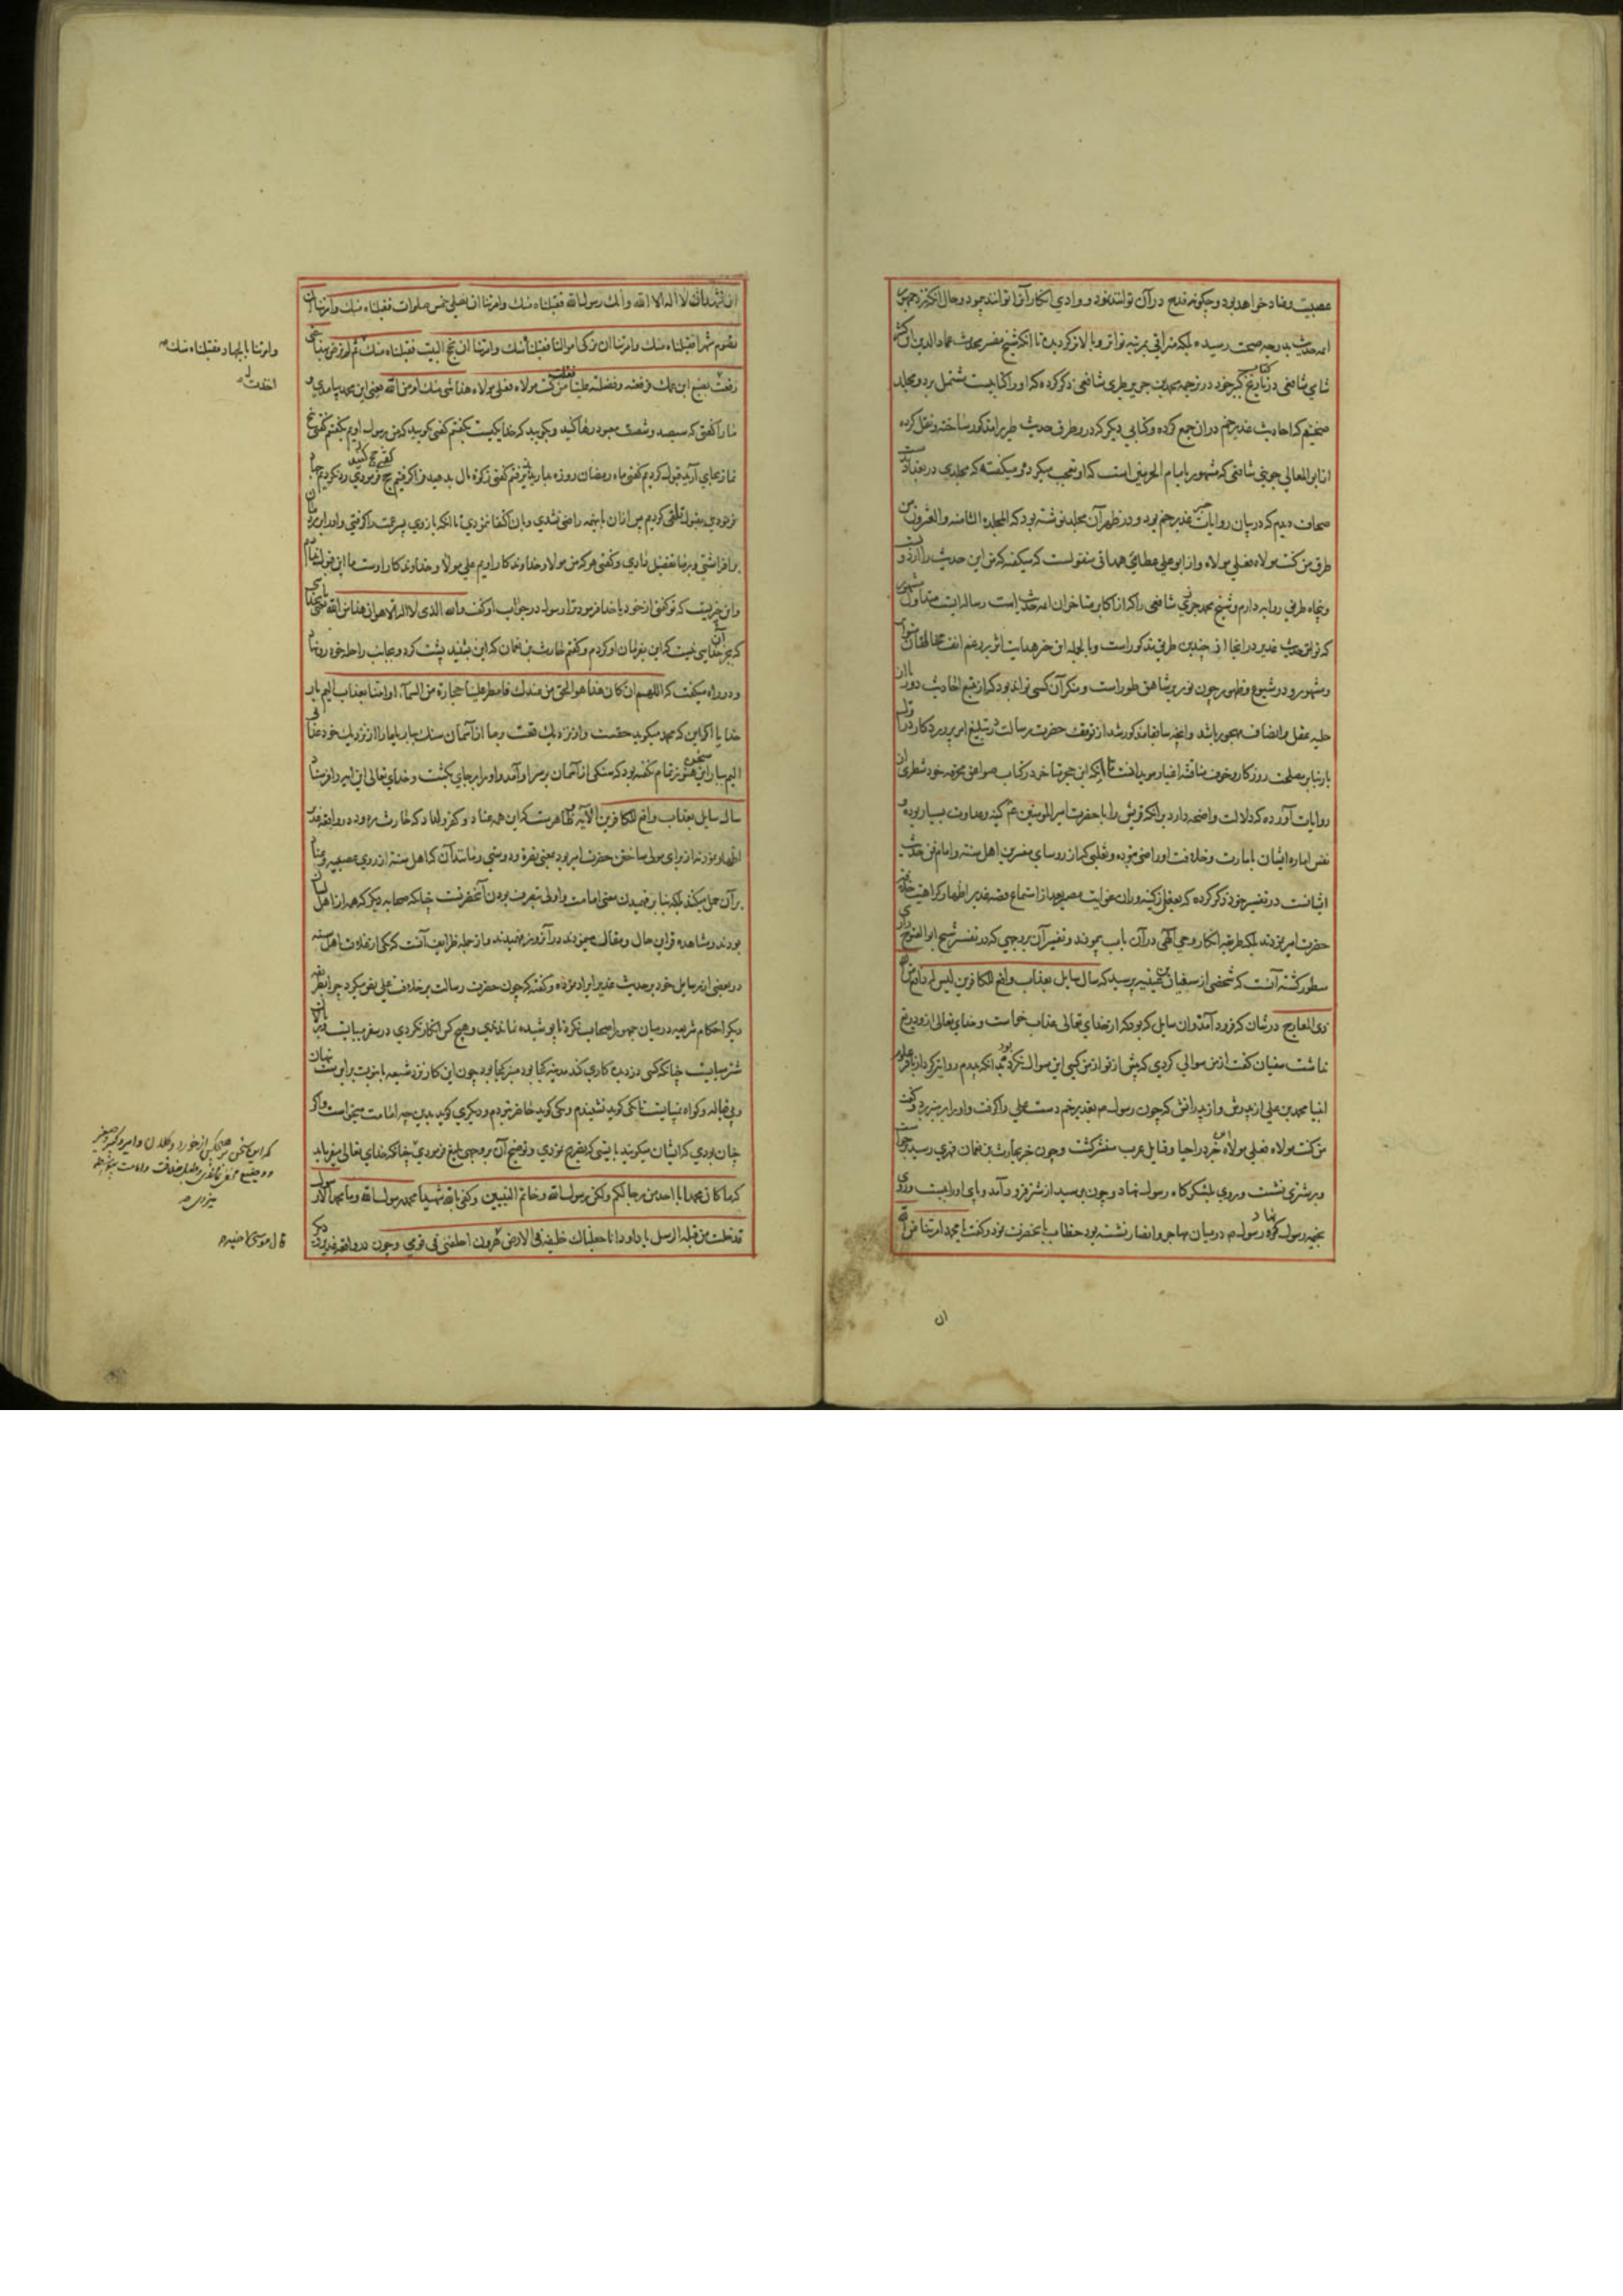 عصبیت وعناد خواهد بود وچگونه قدح در آن توانند نمود و وادی انکار آنرا توانند پیمود وحال آنکه نزد جمهور
ائمه حدیث بدرجه صحت رسیده بلکه مراقی بمرتبه تواتر وبالاتر کردیده تا آنکه شیخ مفسر محدث عماد الدین ابن کثیر
شامی شافعی در تاریخ کبیر خود در ترجمه محمد بن جریر طبری شافعی ذکر کرده که او را کتابیست مشتمل بر دو مجلد
ضخیم که احادیث غدیر خم در ان جمع کرده وکتابی دیگر که در و طرق حدیث طیر را مذکور ساخته ونقل کرده
از ابو المعالی جوینی شافعی که مشهور بامام الحرمین است که او تعجب میکرد و میکفت که مجلدی در بغداد بدست
صحاف دیدم که در بیان روایات خبر غدیر خم بود و در ظهر آن مجلد نوشته بود که المجلدة الثامنة والعشرون من
طرق من کنت مولاه فعلی مولاه واز ابو علی عطائی همدانی منقولست که میکفته که من این حدیث را از دویست
وپنجاه طریق روایه دارم وشیخ محمد جزری شافعی را که از اکابر متاخران ائمه حدیث است رساله ایست متداول مشهور
که تواتر حدیث غدیر در انجا از چندین طریق مذکور است وبالجمله این خبر هدایت اثر بر رغم انف مخالفان
ومشهور و در شیوع وظهور چون نور بر شاهق طور است ومنکر آن کسی تواند بود که از تتبع احادیث دور یا از
حلیه عقل وانصاف مهجور باشد وانچه سابقا مذکور شد از توقف حضرت رسالت در تبلیغ امر پروردکار در
بار بنابر مصلحت روزکار وخوف مناقشه اغیار مویدانست تا آنکه ابن حجر متاخر در کتاب صواعق محرقه خود شطری از
روایات آورده که دلالت واضحه دارد بر آنکه قریش را با حضرت امیر المومنین ع م کینه وعداوت بسیار بوده و
نفس اماره ایشان بامارت وخلافت او راضی نبوده وثعلبی که از روسای مفسرین اهل سنت وامام فن حدیث
ایشانست در تفسیر خود ذکر کرده که بعد از استماع قصه غدیر اظهار کراهیت خلافت
حضرت امیر نمودند بلکه طریقه انکار وحی آلهی در آن باب پیمودند وتفسیر آن بر وجهی که در تفسیر شیخ ابو الفتوح رازی
مسطور کشته آنست که شخصی از سفیان بن عیینه پرسید که سال سایل بعذاب واقع للکافرین لیس له دافع من الله
ذی المعارج در شان که فرود آمد وان سایل که بود که از خدای تعالی عذاب خواست وخدای تعالی از و دریغ
نداشت سفیان کفت از من سوالی کردی که پیش از تو از من کسی این سوال نکرده بود بدانکه پدرم روایت کرد از باقر علوم
انبیا محمد بن علی از پدرش واز پدرانش که چون رسول م بغدیر خم دست علی را کرفت واو را بر منبر برد وکفت
من کنت مولاه فعلی مولاه این خبر در احیا وقبایل عرب منتشر کشت وچون خبر بحارث بن نعمان فهری رسید برخاست
وبر شتری نشست وروی بلشکرکاه رسول نهاد وچون برسید از شتر فرو آمد وپای او را ببست وروی
بخیمه رسول نهاد رسول م در میان مهاجر وانصار نشسته بود خطاب بآنحضرت نمود وکفت یا محمد امرتنا عن الله
ان
ان نشهد ان لا اله الا الله وانک رسول الله فقبلناه منک وامرتنا ان نصلی خمس صلوات فقبلناه منک وامرتنا ان
نصوم شهرا فقبلناه منک وامرتنا ان نزکی اموالنا فقبلنا منک وامرتنا ان نحج البیت فقبلناه منک ثم لم ترض بهذا حتی
رفعت بضبع ابن عمک ترفعه وتفضله علینا فقلت من کنت مولاه فعلی مولاه هذا شی منک او من الله یعنی ای محمد بیامدی و
ما را کفتی که سیصد وشصت معبود رها کنید وبکویید که خدا یکیست بکفتم کفتی کویید که من رسول اویم بکفتم کفتی پنج
نماز بجای آرید قبول کردیم کفتی ماه رمضان روزه بدارید پذیرفتم کفتی زکوة مال بدهید فرا کرفتم کفتی حج کنید
فرمودی بقبول تلقی کردیم پس ازان باینهمه راضی نشدی وبان اکتفا نمودی تا آنکه بازوی پسر عمت را کرفتی واو را بر
بر افراشتی وبر ما تفضیل دادی وکفتی هر که من مولا وخداوندکار اویم علی مولا وخداوندکار اوست
واین چیزیست که تو کفتی از خود یا خدا فرمود ترا رسول در جواب او کفت والله الذی لا اله الا هو ان هذا من الله
که بجز آن خدایی نیست که این بفرمان او کردم وکفتم حارث بن نعمان که این بشنید پشت کرد وبجانب راحله خود روان
و در راه میکفت که اللهم ان کان هذا هو الحق من عندک فامطر علینا حجارة من السماء او ائتنا بعذاب الیم بار
خدایا اکر این که محمد میکوید حقست واز نزدیک تست بر ما از آسمان سنک بباران یا ما را از نزدیک خود عذاب
الیم بیار این سخن هنوز تمام نکفته بود که سنکی از آسمان بر سر او آمد واو را بر جای بکشت وخدای تعالی این ایه را فرستاد
سال سایل بعذاب واقع للکافرین الآیه وظاهرست که این همه عناد وکفر والحاد که حارث مردود در واقعه غدیر
اظهار نمود نه از برای مولی ساختن حضرت امیر بود بمعنی نصرة ودوستی ومانند آن که اهل سنة از روی عصبیت وعناد
بر آن حمل میکنند بلکه بنابر فهمیدن معنی امامت واولی بتصرف بودن آنحضرتست چنانکه صحابه دیکر که همه از اهل
بودند ومشاهده قراین حال ومقال مینمودند در آنروز فهمیدند واز جمله ظرایف آنست که یکی از علمای اهل سنه
در بعضی از رسایل خود بر حدیث غدیر ایراد نموده وکفته که چون حضرت رسالت بر خلافت علی نص میکرد چرا نظیر
دیکر احکام شریعه در میان جمهور اصحاب نکرد تا پوشیده نماندی وهیچ کس انکار نکردی در سفر
شتر میبایست چنانکه کسی دزدیده کاری کند مدینه کجا بود منبر کجا بود چون این کار نزد شیعه با نبوت برابرست
وبی قباله وکواه نمیبایست تا یکی کوید نشنیدم ویکی کوید حاضر نبودم ودیکری کوید بدین چه امامت میخواست واکر
چنان بودی که ایشان میکویند بایستی که تصریح نمودی وتوضیح آن بر وجهی بلیغ فرمودی چنانکه خدای تعالی میفرماید
که ما کان محمد ابا احد من رجالکم ولکن رسول الله وخاتم النبیین وکفی بالله شهیدا محمد رسول الله وما محمد الا رسول
قد خلت من قبله الرسل یا داود انا جعلناک خلیفة فی الارض هرون اخلفنی فی قومی وچون در واقعه غدیر
وامرتنا بالجهاد فقبلناه منک
که این سخن هیچکس از خورد وکلان وامیر وکبیر وصغیر
و وضیع مخفی نماندی وطلب خلافت وامامت
قال موسی لاخیه